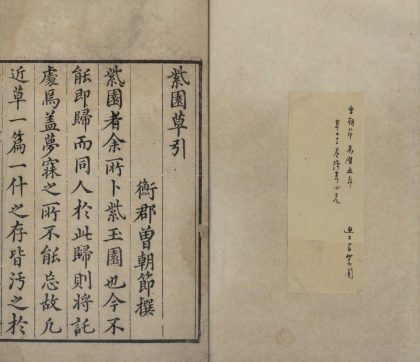 曾朝節 萬曆五年
紫園草引
衡郡曾朝節撰
紫園者余所卜紫玉園也今不
能即歸而同人於此歸則將託
處焉蓋夢寐之所不能忘故凡
近草一篇一什之存皆汚之於